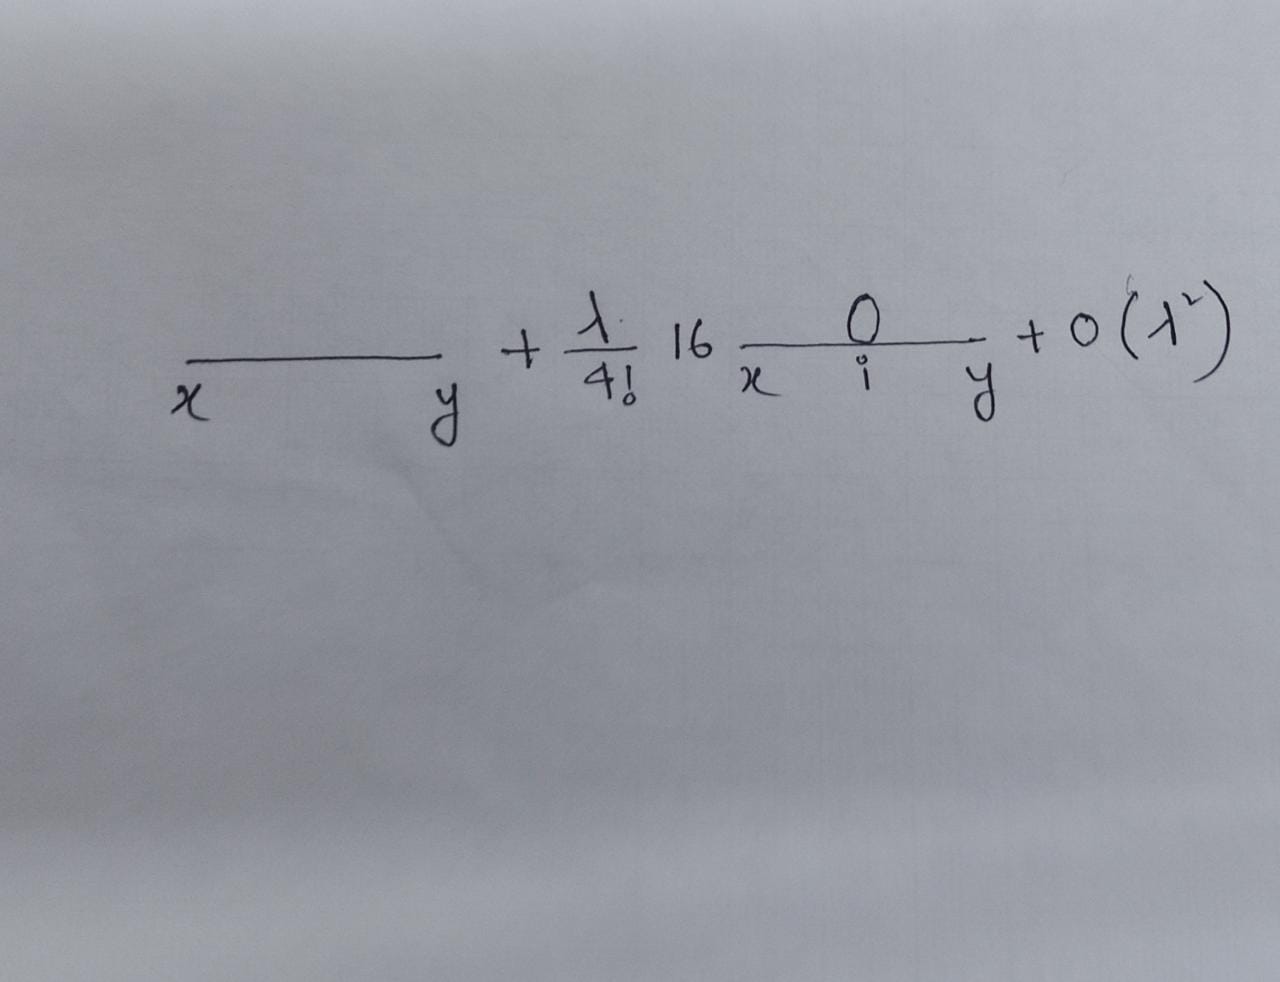 x y + λ/4! 16 x i y + O(λ²)